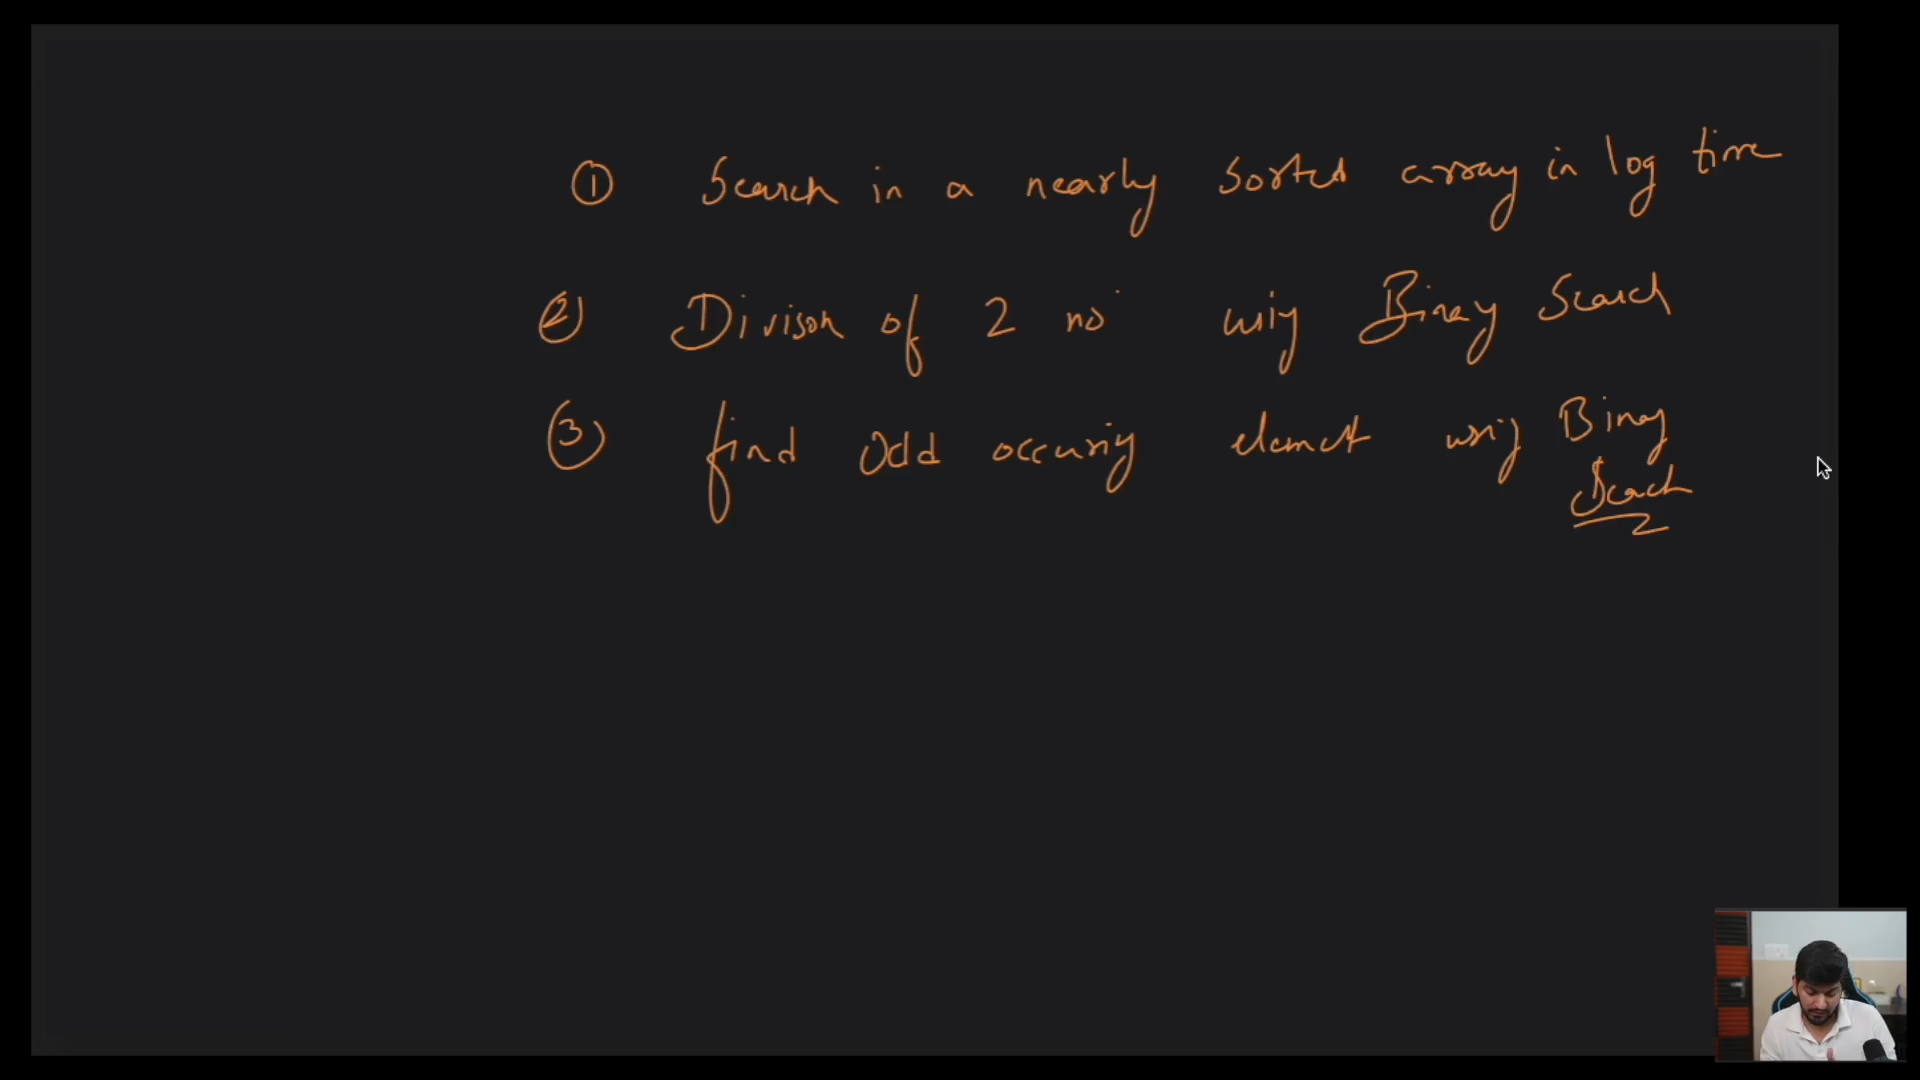 ① Search in a nearly sorted array in log time
② Divison of 2 no using Binay Search
③ find Odd occuring element using Binay
Search